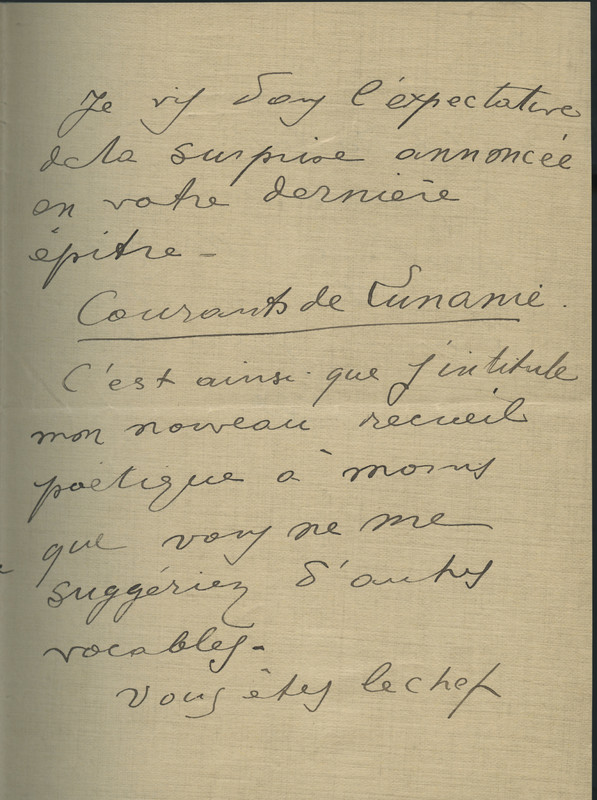 Je vis dans l'expectative
de la surprise annoncée
en votre dernière
épitre -
Courants de Lunanie.
C'est ainsi que j'intitule
mon nouveau recueil
poétique à moins
que vous ne me
suggériez d'autres
vocables.
Vous êtes le chef